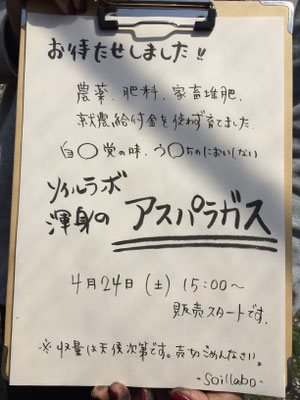 お待たせしました!!
農薬、肥料、家畜堆肥、
就農給付金を使わず育てました。
自〇党の味、う〇ちのにおいしない
ソイルラボ
渾身の アスパラガス
4月24日(土) 15:00〜
販売スタートです。
※収量は天候次第です。売切ごめんなさい。
-Soillabo-